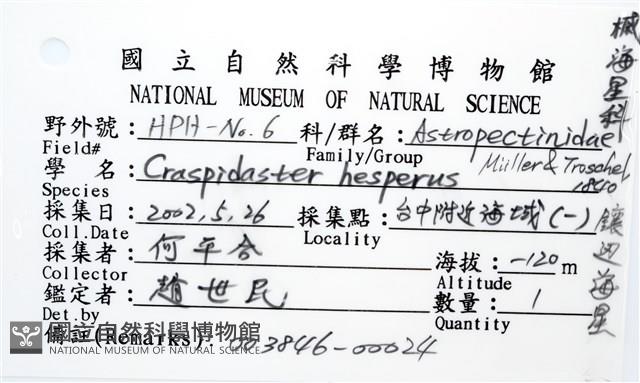 國立自然科學博物館
NATIONAL MUSEUM OF NATURAL SCIENCE
野外號：HPH-No.6 科/群名：Astropectinidae
Field# Family/Group
學 名：Craspidaster hesperus Müller & Troschel
Species 1840
採集日：2002,5,26 採集點：台中附近海域(一)
Coll.Date Locality
採集者：何平合 海拔：-120 m
Collector Altitude
鑑定者：趙世民 數量：1
Det.by Quantity
備註(Remarks)：003846-00024
國立自然科學博物館
NATIONAL MUSEUM OF NATURAL SCIENCE
槭海星科
鑲邊海星